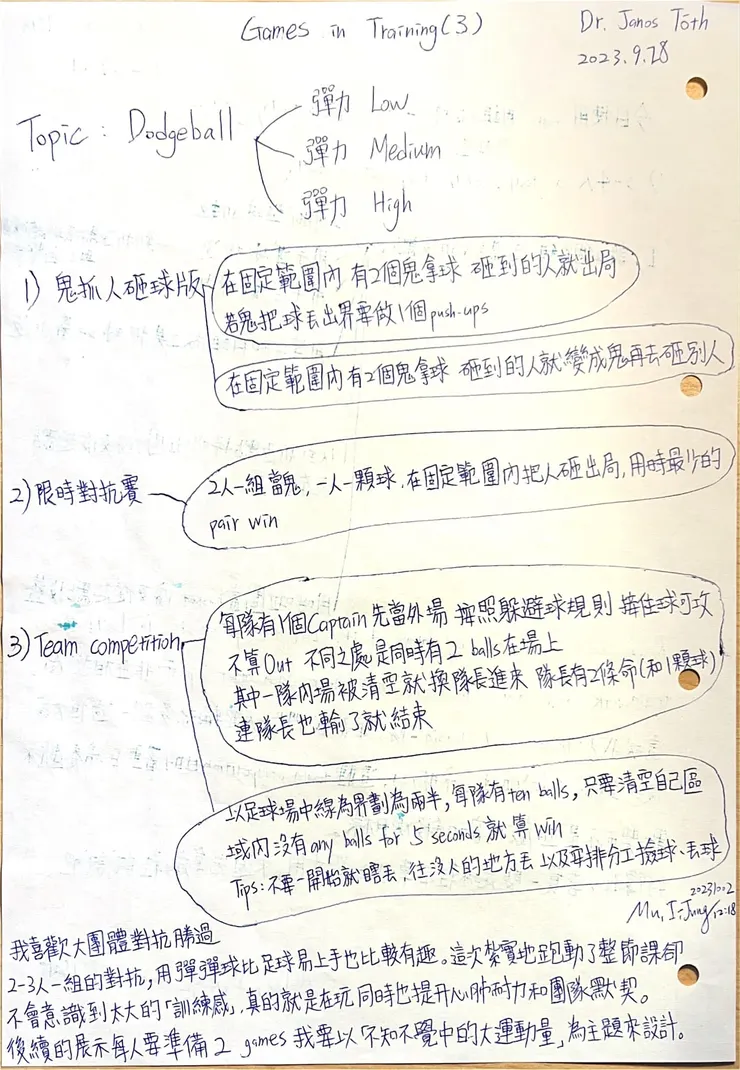 Games in Training(3)
Dr. Janos Tóth
2023.9.28
Topic : Dodgeball
彈力 Low
彈力 Medium
彈力 High
1) 鬼抓人砸球版
在固定範圍內 有2個鬼拿球 砸到的人就出局
若鬼把球丟出界要做1個push-ups
在固定範圍內有2個鬼拿球 砸到的人就變成鬼再去砸別人
2) 限時對抗賽
2人一組當鬼, 一人一顆球, 在固定範圍內把人砸出局, 用時最少的
pair win
3) Team competition
每隊有1個Captain先當外場 按照躲避球規則 接住球可攻
不算Out 不同之處是同時有2 balls在場上
其中一隊內場被清空就換隊長進來 隊長有2條命(和1顆球)
連隊長也輸了就結束
以足球場中線為界劃為兩半, 每隊有ten balls, 只要清空自己區
域內沒有any balls for 5 seconds 就算win
Tips: 不要一開始就瞎丟, 往沒人的地方丟 以及安排分工撿球、丟球
20231002
Mu, I-Jung 12:18
我喜歡大團體對抗勝過
2-3人一組的對抗, 用彈彈球比足球易上手也比較有趣。這次紮實地跑動了整節課卻
不會意識到太大的「訓練感」, 真的就是在玩 同時也提升心肺耐力和團隊默契。
後續的展示每人要準備 2 games 我要以「不知不覺中的大運動量」為主題來設計。